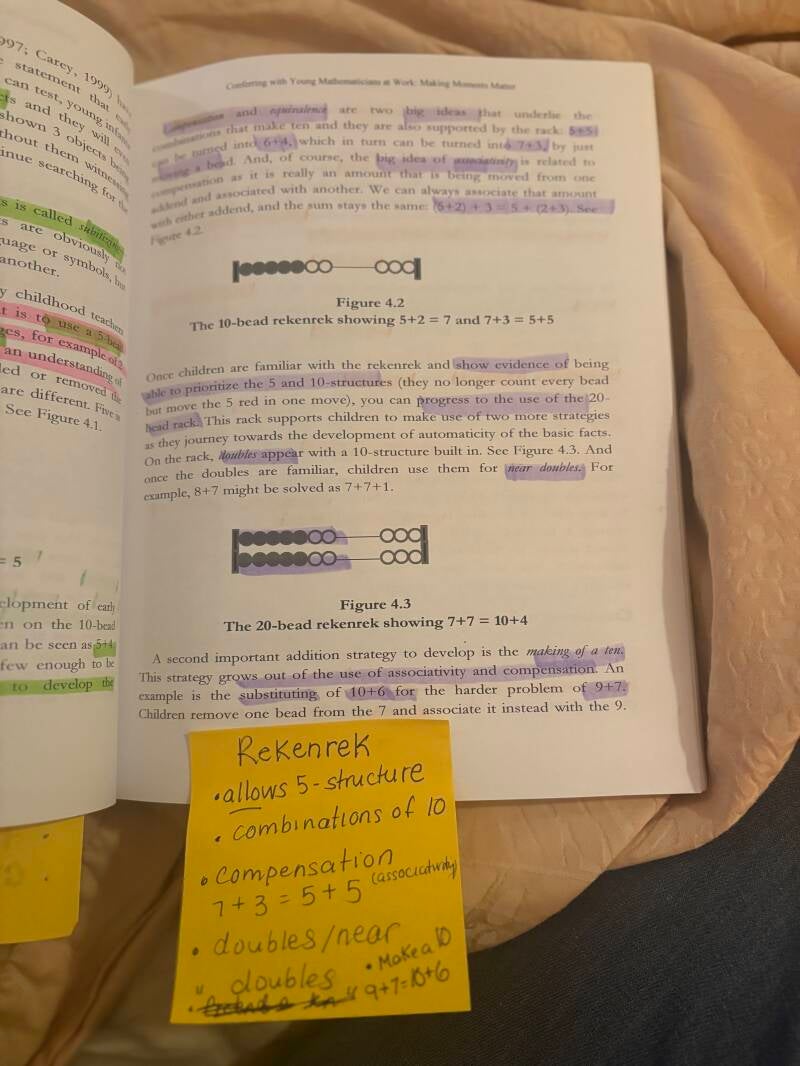 997; Carey, 1999)
statement that
can test, young
cts and they will
shown 3 objects
thout them witnessing
inue searching for the
s is called
s are obviously
uage or symbols, but
another.
y childhood teachers
t is to use a 5-bead
ges, for example of 2
an understanding of
led or removed the
are different. Five is
See Figure 4.1.
= 5
elopment of early
en on the 10-bead
an be seen as 5+4
few enough to be
to develop the
Conferring with Young Mathematicians at Work: Making Moments Matter
Compensation and equivalence are two big ideas that underlie the
combinations that make ten and they are also supported by the rack: 5+5
can be turned into 6+4, which in turn can be turned into 7+3, by just
moving a bead. And, of course, the big idea of associativity is related to
compensation as it is really an amount that is being moved from one
addend and associated with another. We can always associate that amount
with either addend, and the sum stays the same: (5+2) + 3 = 5 + (2+3). See
Figure 4.2.
Figure 4.2
The 10-bead rekenrek showing 5+2 = 7 and 7+3 = 5+5
Once children are familiar with the rekenrek and show evidence of being
able to prioritize the 5 and 10-structures (they no longer count every bead
but move the 5 red in one move), you can progress to the use of the 20-
bead rack. This rack supports children to make use of two more strategies
as they journey towards the development of automaticity of the basic facts.
On the rack, doubles appear with a 10-structure built in. See Figure 4.3. And
once the doubles are familiar, children use them for near doubles. For
example, 8+7 might be solved as 7+7+1.
Figure 4.3
The 20-bead rekenrek showing 7+7 = 10+4
A second important addition strategy to develop is the making of a ten.
This strategy grows out of the use of associativity and compensation. An
example is the substituting of 10+6 for the harder problem of 9+7.
Children remove one bead from the 7 and associate it instead with the 9.
Rekenrek
• allows 5-structure
• combinations of 10
• compensation
(associcativity)
7+3 = 5+5
• doubles/near
" doubles
• Make a 10
" 9+7=10+6